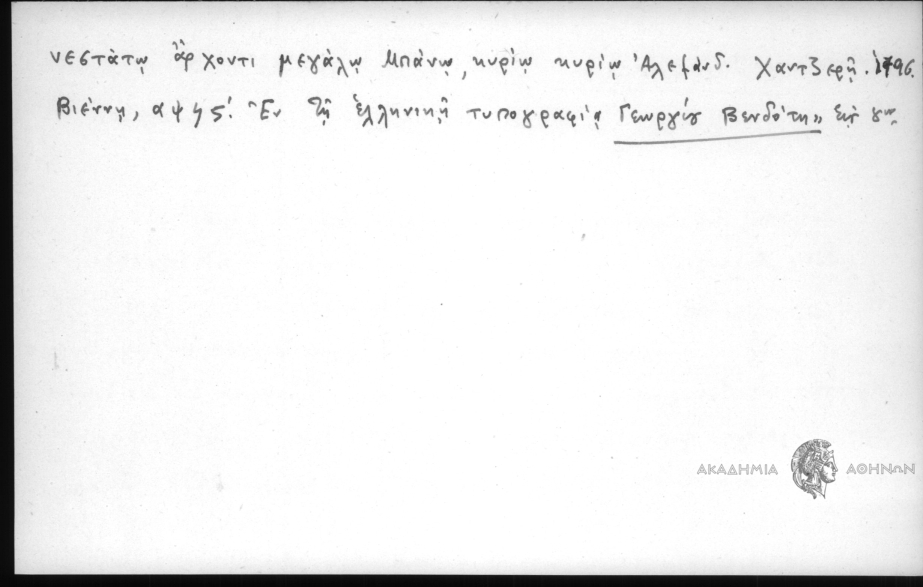 νεστάτῳ ἄρχοντι μεγάλῳ Μπάνῳ, κυρίῳ κυρίῳ Ἀλεξάνδ. Χαντζερῇ. 1796.
Βιέννῃ, αψϟς΄. Ἐν τῇ ἑλληνικῇ τυπογραφίᾳ Γεωργίου Βενδότη» εἰς
ΑΚΑΔΗΜΙΑ ΑΘΗΝΩΝ